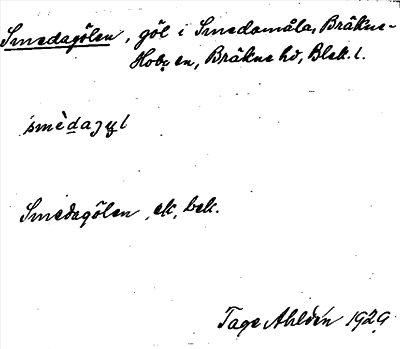 Smedagölen, göl i Smedamåla, Bräkne-
Hoby sn, Bräkne hd, Blek. l.
Smedagölen, ek, bek.
Tage Ahldén 1929